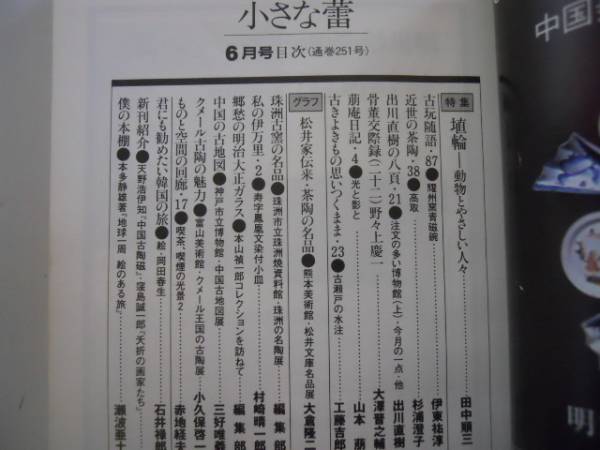 小さな蕾
6月号目次(通巻251号)
特集 埴輪―動物とやさしい人々 田中順三
古玩随語・87●耀州窯青磁碗 伊東祐淳
近世の茶陶・38●高取 杉浦澄子
出川直樹の八頁・21●注文の多い博物館(上)・今月の一点・他 出川直樹
骨董交際録(二十二)野々上慶一 大澤晋之輔
萠庵日記・4●光と影と 山本萠
古きよきもの思いつくまま・23●古瀬戸の水注 工藤吉郎
グラフ 松井家伝来・茶陶の名品●熊本美術館・松井文庫名品展 大倉隆二
珠洲古窯の名品●珠洲市立珠洲焼資料館・珠洲の名陶展 編集部
私の伊万里・2●寿字鳳凰文染付小皿 村崎晴一郎
郷愁の明治大正ガラス●本山禎一郎コレクションを訪ねて 編集部
中国の古地図●神戸市立博物館・中国古地図展 三好唯義
クメール古陶の魅力●富山美術館・クメール王国の古陶展 小久保啓一
ものと空間の回廊・17●喫茶、喫煙の光景2 赤地経夫
君にも勧めたい韓国の旅●絵・岡田春生 石井禄郎
新刊紹介●天野浩伊知『中国古陶磁』・窪島誠一郎『夭折の画家たち』
僕の本棚●本多静雄著『地球一周 絵のある旅』 瀬波亜士
中国
明